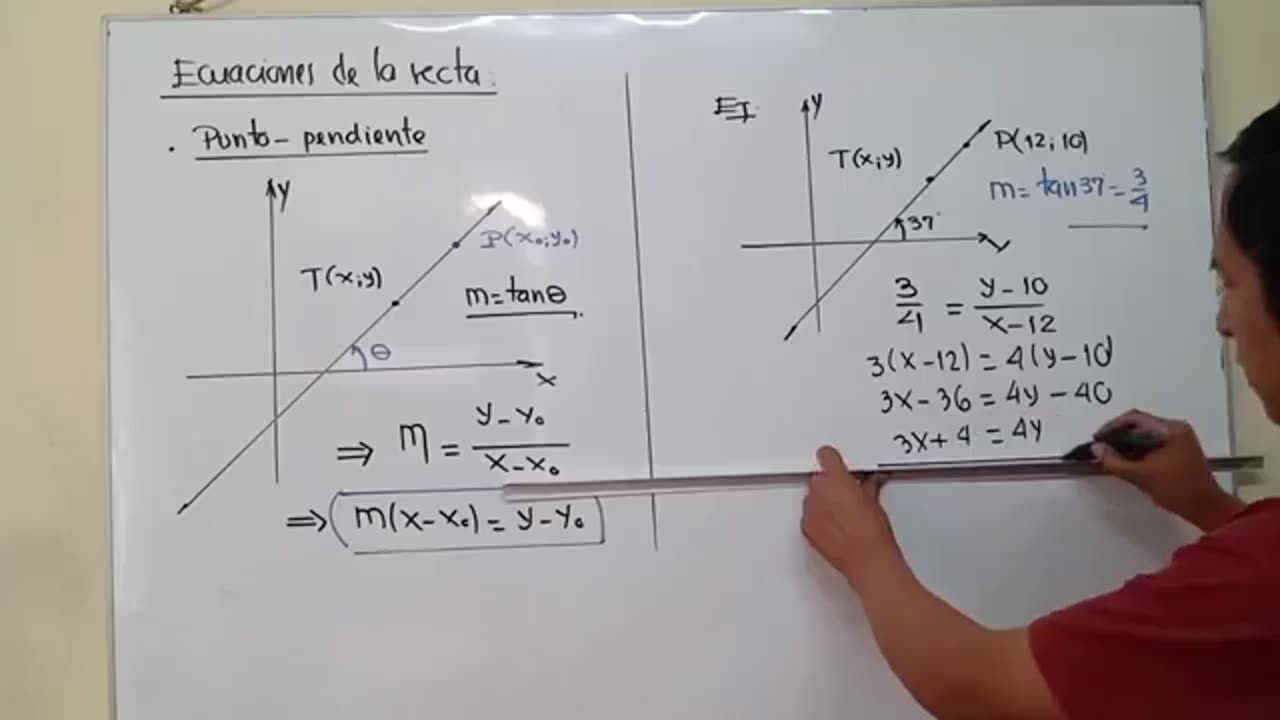 Ecuaciones de la recta:
. Punto - pendiente
y
P(x₀;y₀)
T(x;y)
m=tanθ
θ
x
⇒ m = (y - y₀)/(x - x₀)
⇒ m(x-x₀) = y-y₀
EJ:
y
P(12;10)
T(x;y)
m = tan37 = 3/4
37°
3/4 = (y-10)/(x-12)
3(x-12) = 4(y-10)
3x - 36 = 4y - 40
3x + 4 = 4y